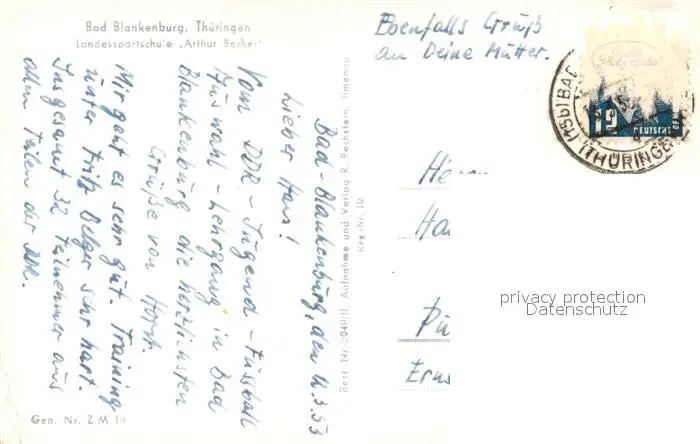 Bad Blankenburg, Thüringen
Landessportschule „Arthur Becker"
Ebenfalls Gruß
an Deine Mutter.
Bad-Blankenburg, den 12.3.53
Lieber Hans!
Vom DDR-Jugend-Fussball
Auswahl-Lehrgang in Bad
Blankenburg die herzlichsten
Grüße von Horst.
Mir geht es sehr gut. Training
unter Fritz Belger sehr hart.
Insgesamt 32 Teilnehmer aus
allen Teilen der DDR.
Gen. Nr. Z M 19
Best. Nr. 2049/II. Aufnahme und Verlag R. Bechstein, Ilmenau
Krg.-Nr. 10
12
DEUTSCHE DEM
(15b) BAD
(THÜRINGE
He
Ha
Pu
Erns
privacy protection
Datenschutz